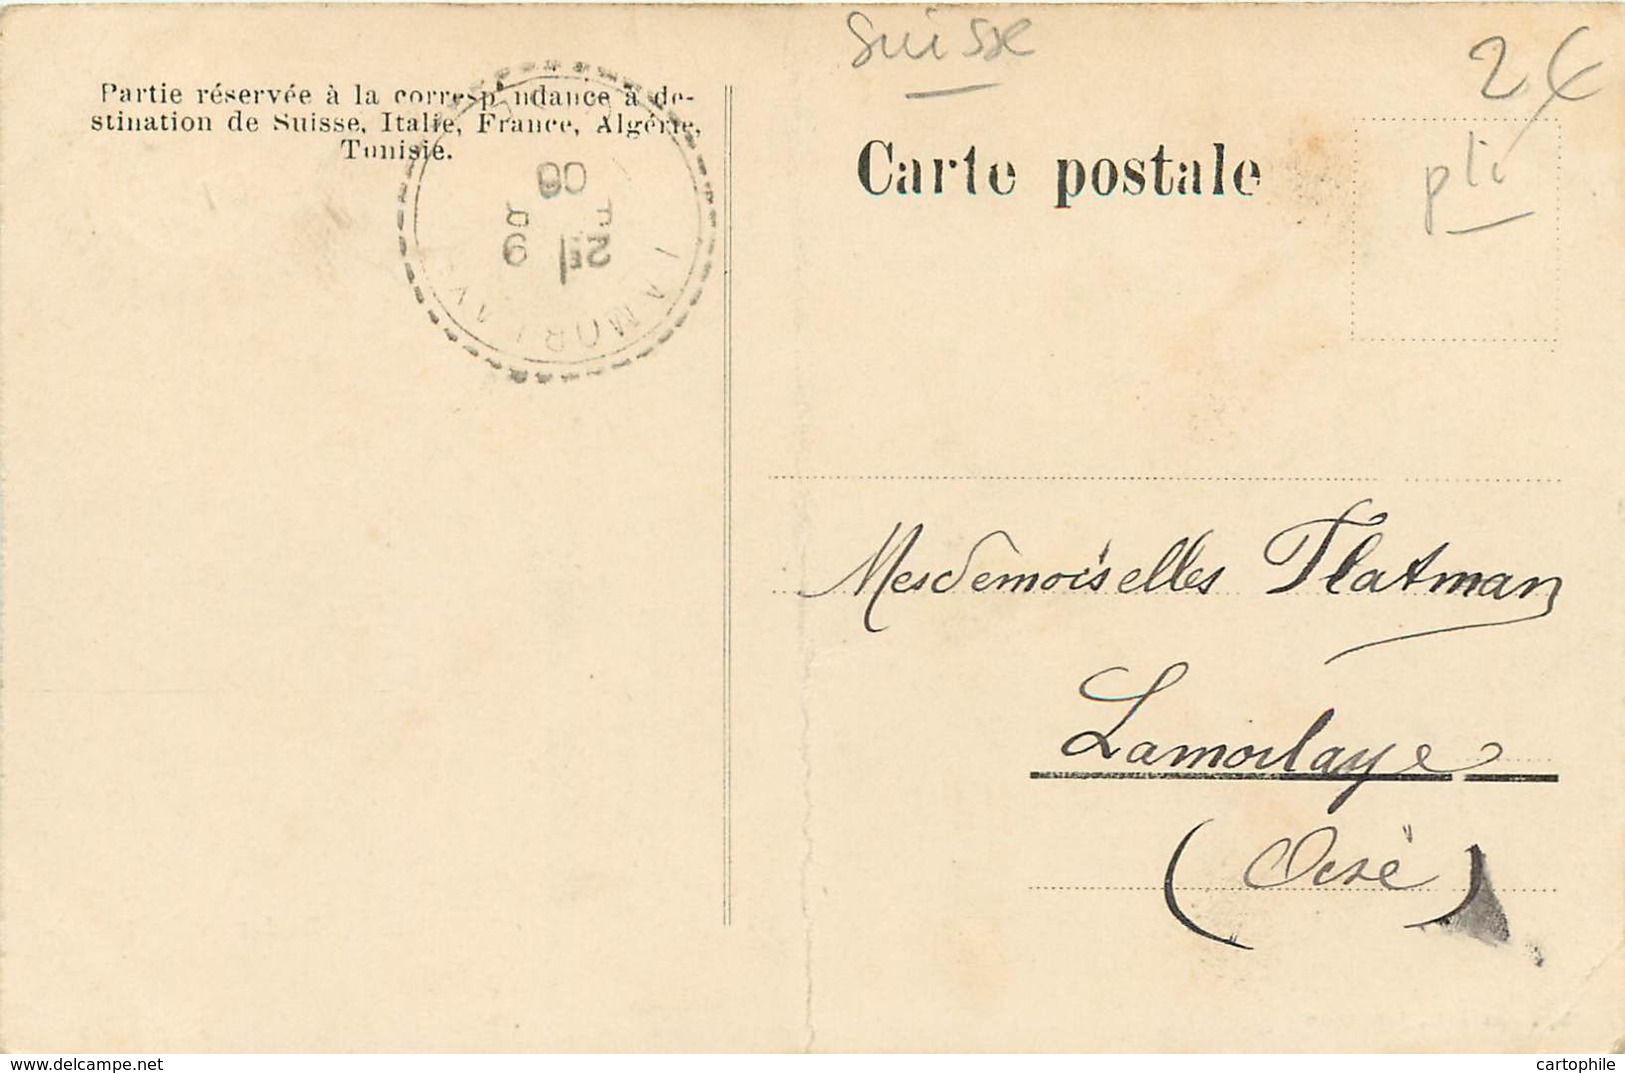 Suisse
2€
pli
Partie réservée à la correspondance à de-
stination de Suisse, Italie, France, Algérie,
Tunisie.
Carte postale
LAMORLAYE
Mesdemoiselles Flatman
Lamorlaye
(Oise)
www.delcampe.net
cartophile